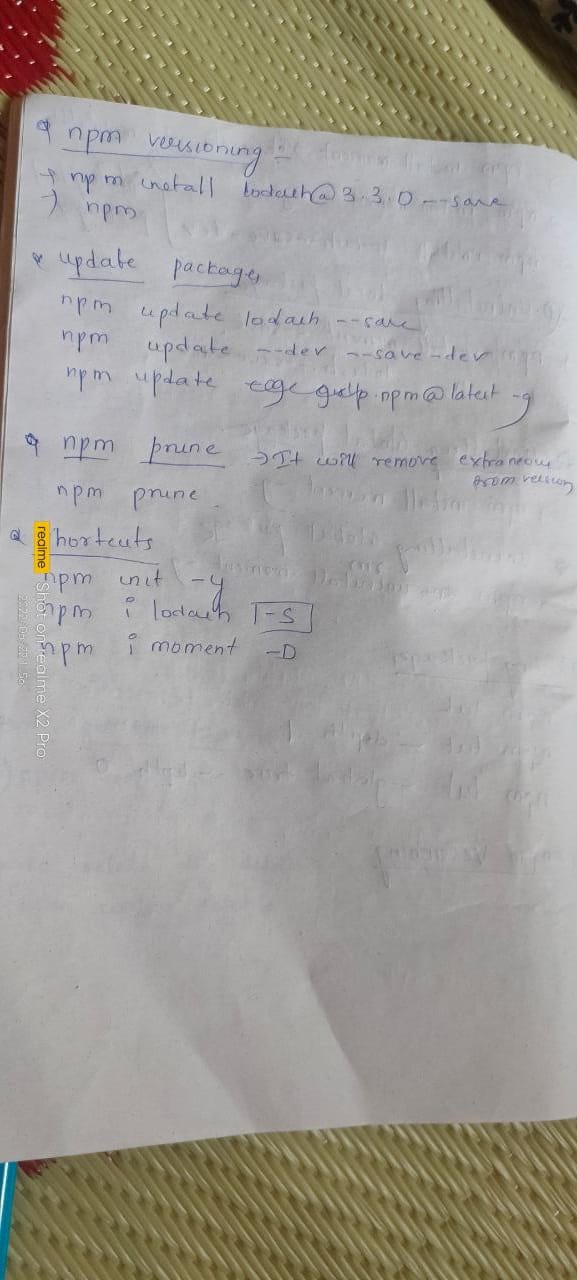 npm versioning :-
→ npm install lodash@3.3.0 --save
→ npm
* update packages
npm update lodash --save
npm update --dev --save-dev
npm update gulp npm@latest -g
npm prune → It will remove extraneous
from version
npm prune
Shortcuts
npm init -y
npm i lodash -S
npm i moment -D
realme Shot on realme X2 Pro